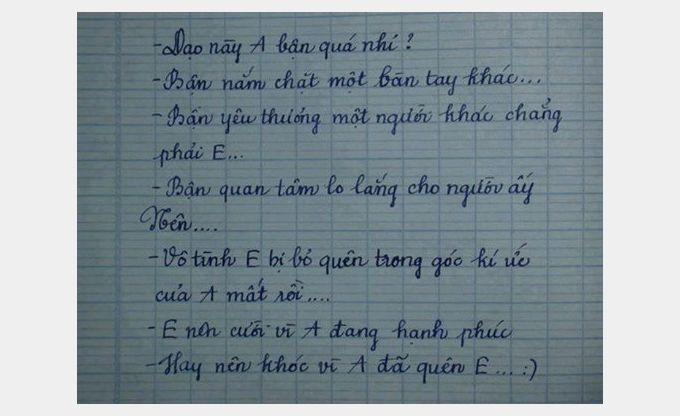 -Dạo này A bận quá nhỉ?
-Bận nắm chặt một bàn tay khác...
-Bận yêu thương một người khác chẳng
phải E...
-Bận quan tâm lo lắng cho người ấy
Nên....
-Vô tình E bị bỏ quên trong góc kí ức
của A mất rồi....
-E nên cười vì A đang hạnh phúc
-Hay nên khóc vì A đã quên E...:)